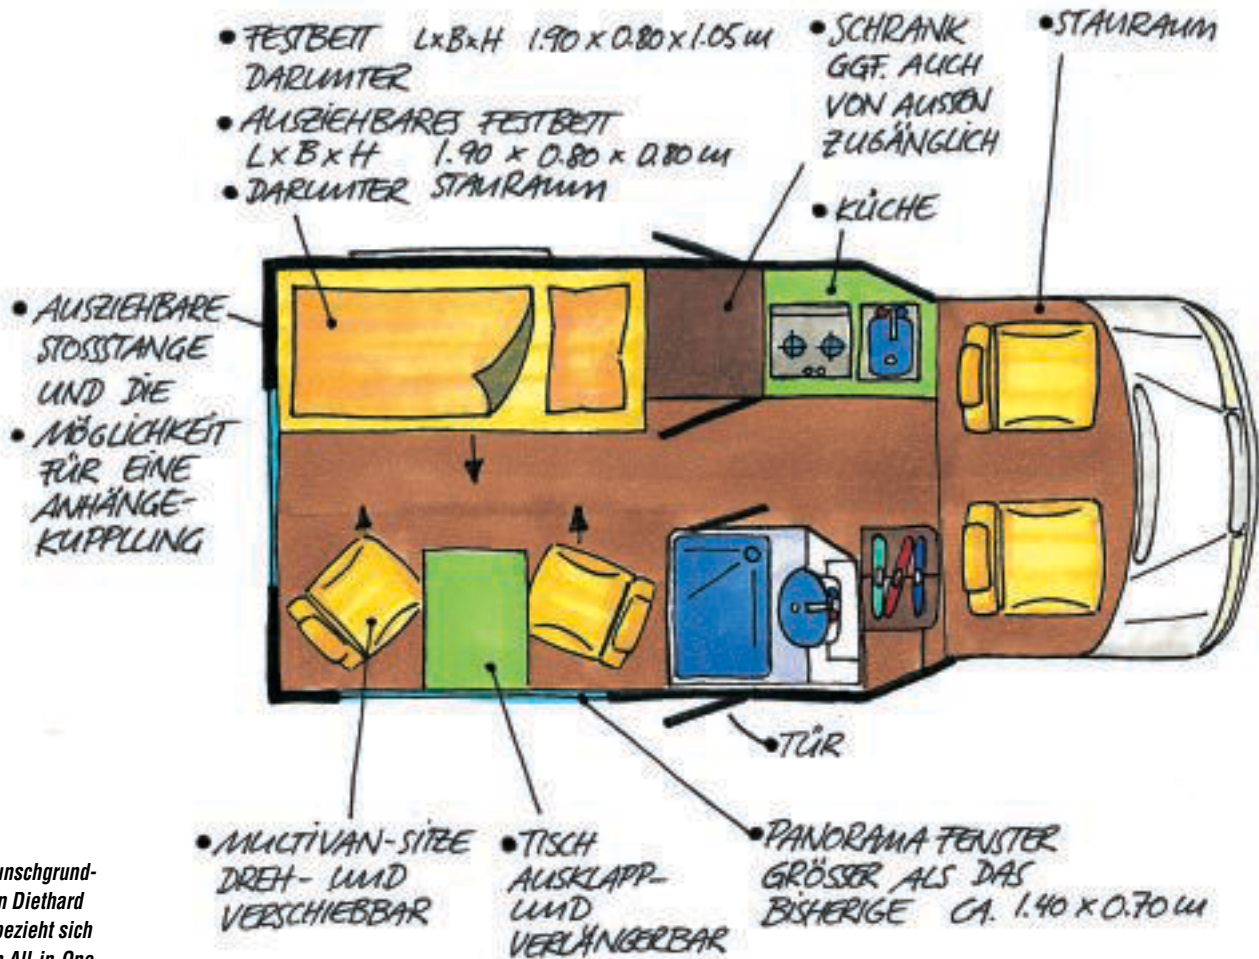 • FESTBETT LxBxH 1.90 x 0.80 x 1.05 m
DARUNTER
• AUSZIEHBARES FESTBETT
LxBxH 1.90 x 0.80 x 0.80 m
• DARUNTER STAURAUM
• SCHRANK
GGF. AUCH
VON AUSSEN
ZUGÄNGLICH
• STAURAUM
• KÜCHE
• AUSZIEHBARE
STOSSSTANGE
UND DIE
• MÖGLICHKEIT
FÜR EINE
ANHÄNGE-
KUPPLUNG
• TÜR
• MULTIVAN-SITZE
DREH- UND
VERSCHIEBBAR
• TISCH
AUSKLAPP-
UND
VERLÄNGERBAR
• PANORAMA FENSTER
GRÖSSER ALS DAS
BISHERIGE CA. 1.40 x 0.70 m
unschgrund-
n Diethard
bezieht sich
All-in-One